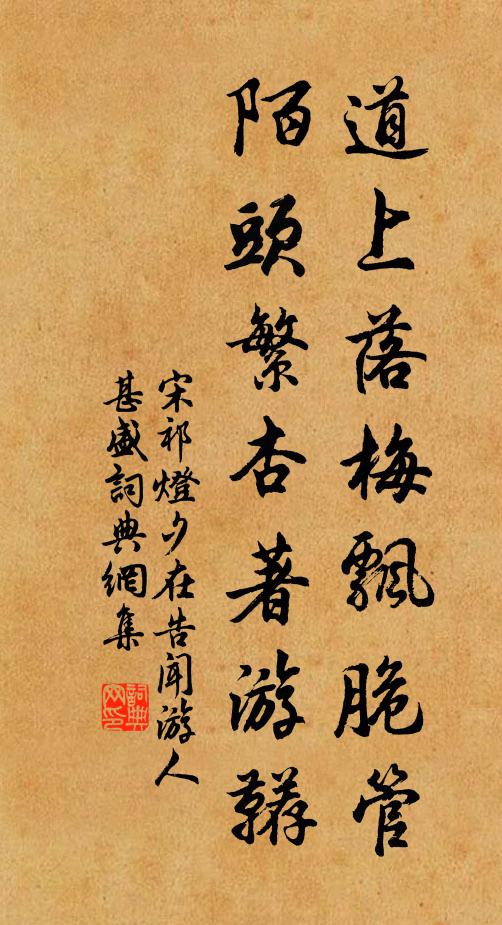 道上落梅飄脆管
陌頭繁杏著游鞯
宋祁燈夕在告聞游人
甚盛詞典網集
詞典网印